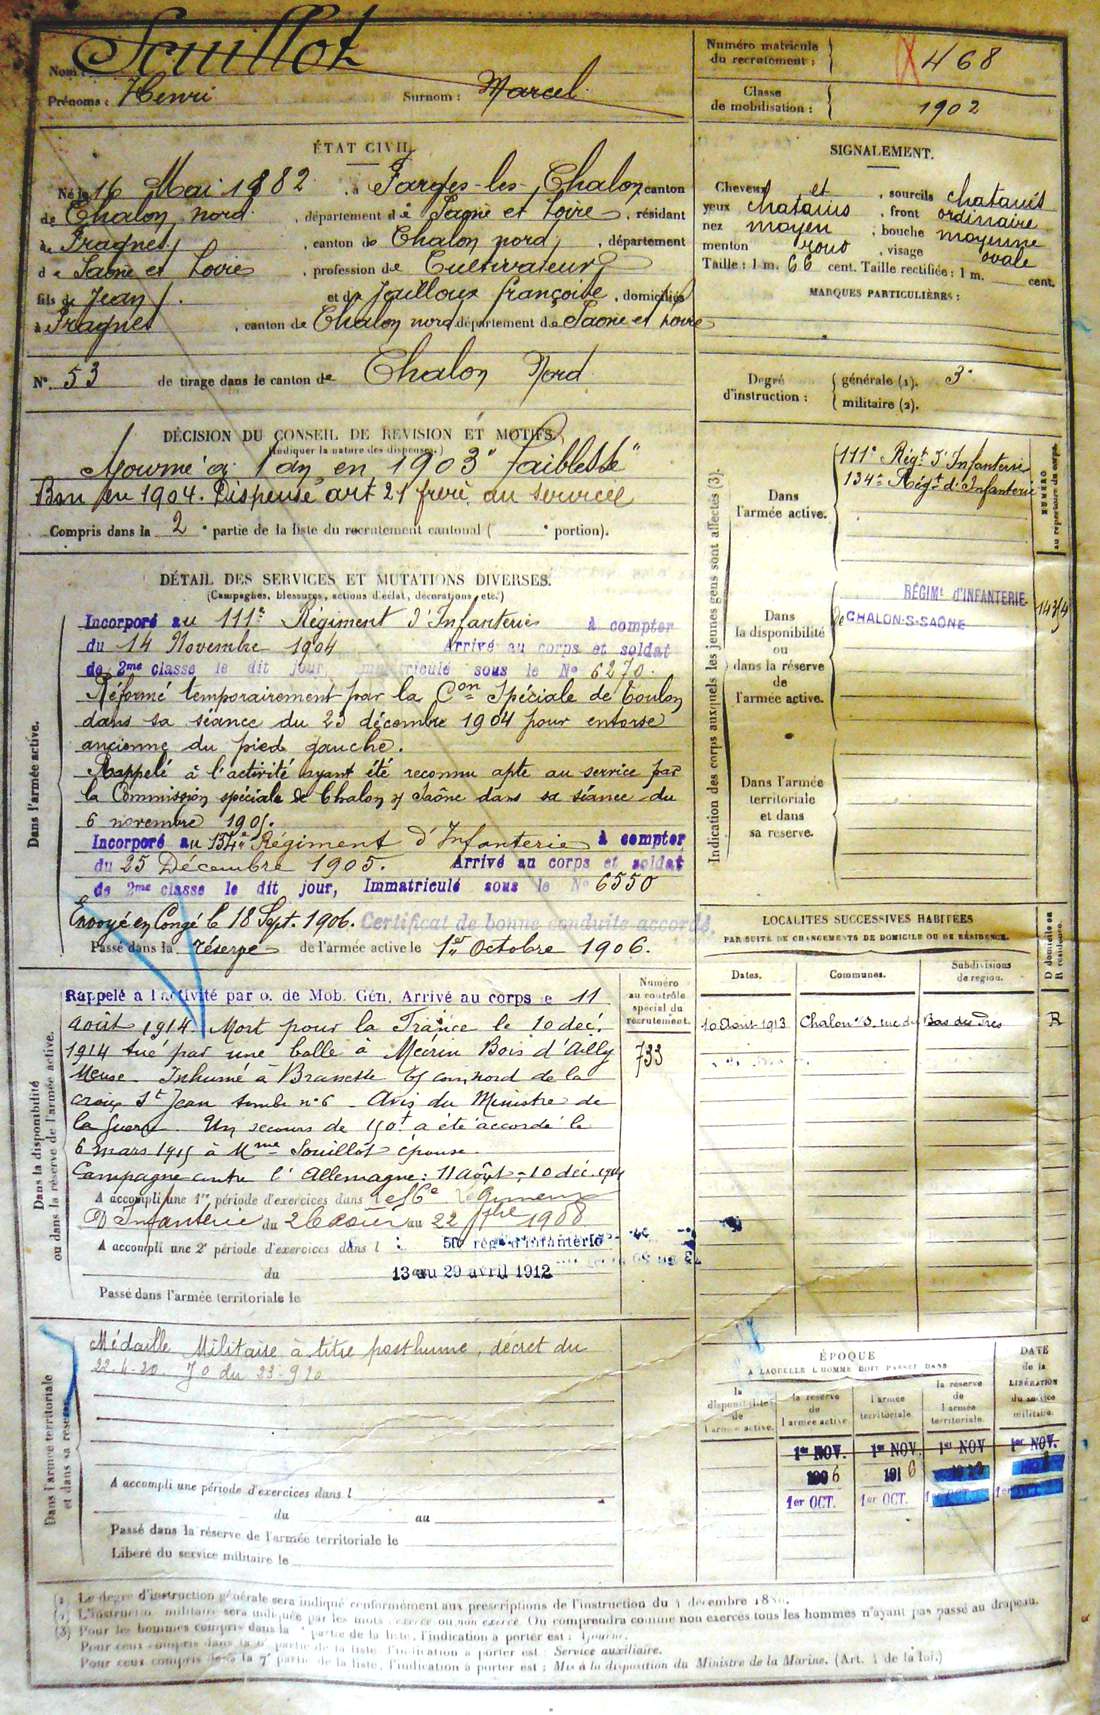 Nom : Souillot
Prénoms : Henri Surnom : Marcel
Numéro matricule du recrutement : 468
Classe de mobilisation : 1902
ÉTAT CIVIL.
Né le 16 Mai 1882, à Farges-les-Chalon, canton
de Chalon nord, département de Saône et Loire, résidant
à Fragnes, canton de Chalon nord, département
de Saône et Loire, profession de Cultivateur
fils de Jean et de Jailloux françoise, domiciliés
à Fragnes, canton de Chalon nord département de Saône et Loire
N° 53 de tirage dans le canton de Chalon Nord
SIGNALEMENT.
Cheveux et , sourcils chatains
yeux chatains , front ordinaire
nez moyen , bouche moyenne
menton rond , visage ovale
Taille : 1 m. 66 cent. Taille rectifiée : 1 m. cent.
MARQUES PARTICULIÈRES :
Degré d'instruction : générale (1). 3
militaire (2).
DÉCISION DU CONSEIL DE REVISION ET MOTIFS.
(Indiquer la nature des dispenses.)
Ajourné à 1 an en 1903 "faiblesse"
Bon en 1904. Dispensé art 21 frère au service
Compris dans la 2e partie de la liste du recrutement cantonal ( e portion).
DÉTAIL DES SERVICES ET MUTATIONS DIVERSES.
(Campagnes, blessures, actions d'éclat, décorations, etc.)
Dans l'armée active.
Incorporé au 111e Régiment d'Infanterie à compter
du 14 Novembre 1904 Arrivé au corps et soldat
de 2me classe le dit jour, immatriculé sous le No 6270.
Réformé temporairement par la Con Spéciale de Toulon
dans sa séance du 23 décembre 1904 pour entorse
ancienne du pied gauche.
Rappelé à l'activité ayant été reconnu apte au service par
la Commission spéciale de Chalon s/ Saône dans sa séance du
6 novembre 1905.
Incorporé au 134e Régiment d'Infanterie à compter
du 25 Décembre 1905. Arrivé au corps et soldat
de 2me classe le dit jour, Immatriculé sous le No 6550
Envoyé en Congé le 18 Sept. 1906. Certificat de bonne conduite accordé.
Passé dans la réserve de l'armée active le 1er Octobre 1906.
Dans la disponibilité
ou dans la réserve de l'armée active.
Rappelé à l'activité par o. de Mob. Gén. Arrivé au corps le 11
août 1914. Mort pour la France le 10 déc.
1914 tué par une balle à Mécrin Bois d'Ailly
Meuse. Inhumé à nord de la
croix St Jean tombe n° 6 - Avis du Ministre de
la Guerre. Un secours de 150f a été accordé le
6 mars 1915 à Mme Souillot épouse.
Campagne contre l'Allemagne : 11 août - 10 déc. 1914
A accompli une 1re période d'exercices dans le 56e Régiment
D'Infanterie du 26 août au 22 7bre 1908
A accompli une 2e période d'exercices dans l rég d'infanterie
du 13 au 29 avril 1912
Passé dans l'armée territoriale le
Numéro au contrôle spécial du recrutement.
733
Dans l'armée territoriale
et dans sa réserve.
Médaille Militaire à titre posthume, décret du
22-4-20 JO du 23-9 20
A accompli une période d'exercices dans l
du au
Passé dans la réserve de l'armée territoriale le
Libéré du service militaire le
Indication des corps auxquels les jeunes gens sont affectés (3).
NUMÉRO au répertoire du corps.
Dans l'armée active.
111e Régt d'Infanterie
134e Régt d'Infanterie
Dans la disponibilité ou dans la réserve de l'armée active.
RÉGIMt d'INFANTERIE
de CHALON-S-SAÔNE
Dans l'armée territoriale et dans sa réserve.
LOCALITÉS SUCCESSIVES HABITÉES
PAR SUITE DE CHANGEMENTS DE DOMICILE OU DE RÉSIDENCE.
D domicile ou R résidence.
Dates. Communes. Subdivisions de région.
10 Août 1913 Chalon s/s, rue du Bas des Prés R
ÉPOQUE
A LAQUELLE L'HOMME DOIT PASSER DANS
DATE de la LIBÉRATION du service militaire.
la disponibilité de l'armée active.
la réserve de l'armée active.
l'armée territoriale.
la réserve de l'armée territoriale.
1er NOV. 1er NOV. 1er NOV 1er NOV.
1906 1916
1er OCT. 1er OCT.
(1) Le degré d'instruction générale sera indiqué conformément aux prescriptions de l'instruction du
(2) L'instruction militaire sera indiquée par les mots : exercé ou non exercé. On comprendra comme non exercés tous les hommes n'ayant pas passé au drapeau.
(3) Pour les hommes compris dans la partie de la liste, l'indication à porter est : Ajourné.
Pour ceux compris dans la 6e partie de la liste, l'indication à porter est : Service auxiliaire.
Pour ceux compris dans la 7e partie de la liste, l'indication à porter est : Mis à la disposition du Ministre de la Marine. (Art. 4 de la loi.)